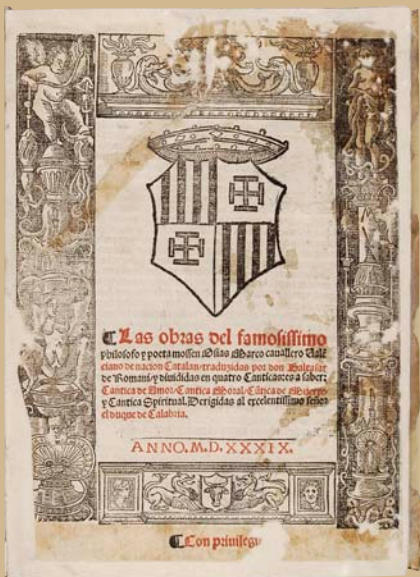 Las obras del famosissimo
philosofo y poeta mossen Osias Marco cavallero Valē
ciano de nacion Catalan/traduzidas por don Baltasar
de Romani/y divididas en quatro Canticas:es a saber:
Cantica de Amor/Cantica Moral/Cātica de Muerte
y Cantica Spiritual. Derigidas al excelentissimo señor
el duque de Calabria.
ANNO.M.D.XXXIX.
Con privileg